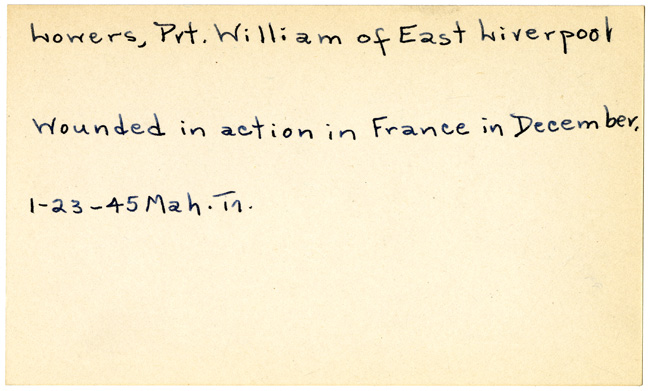 Lowers, Pvt. William of East Liverpool
Wounded in action in France in December.
1-23-45 Mah. Tr.